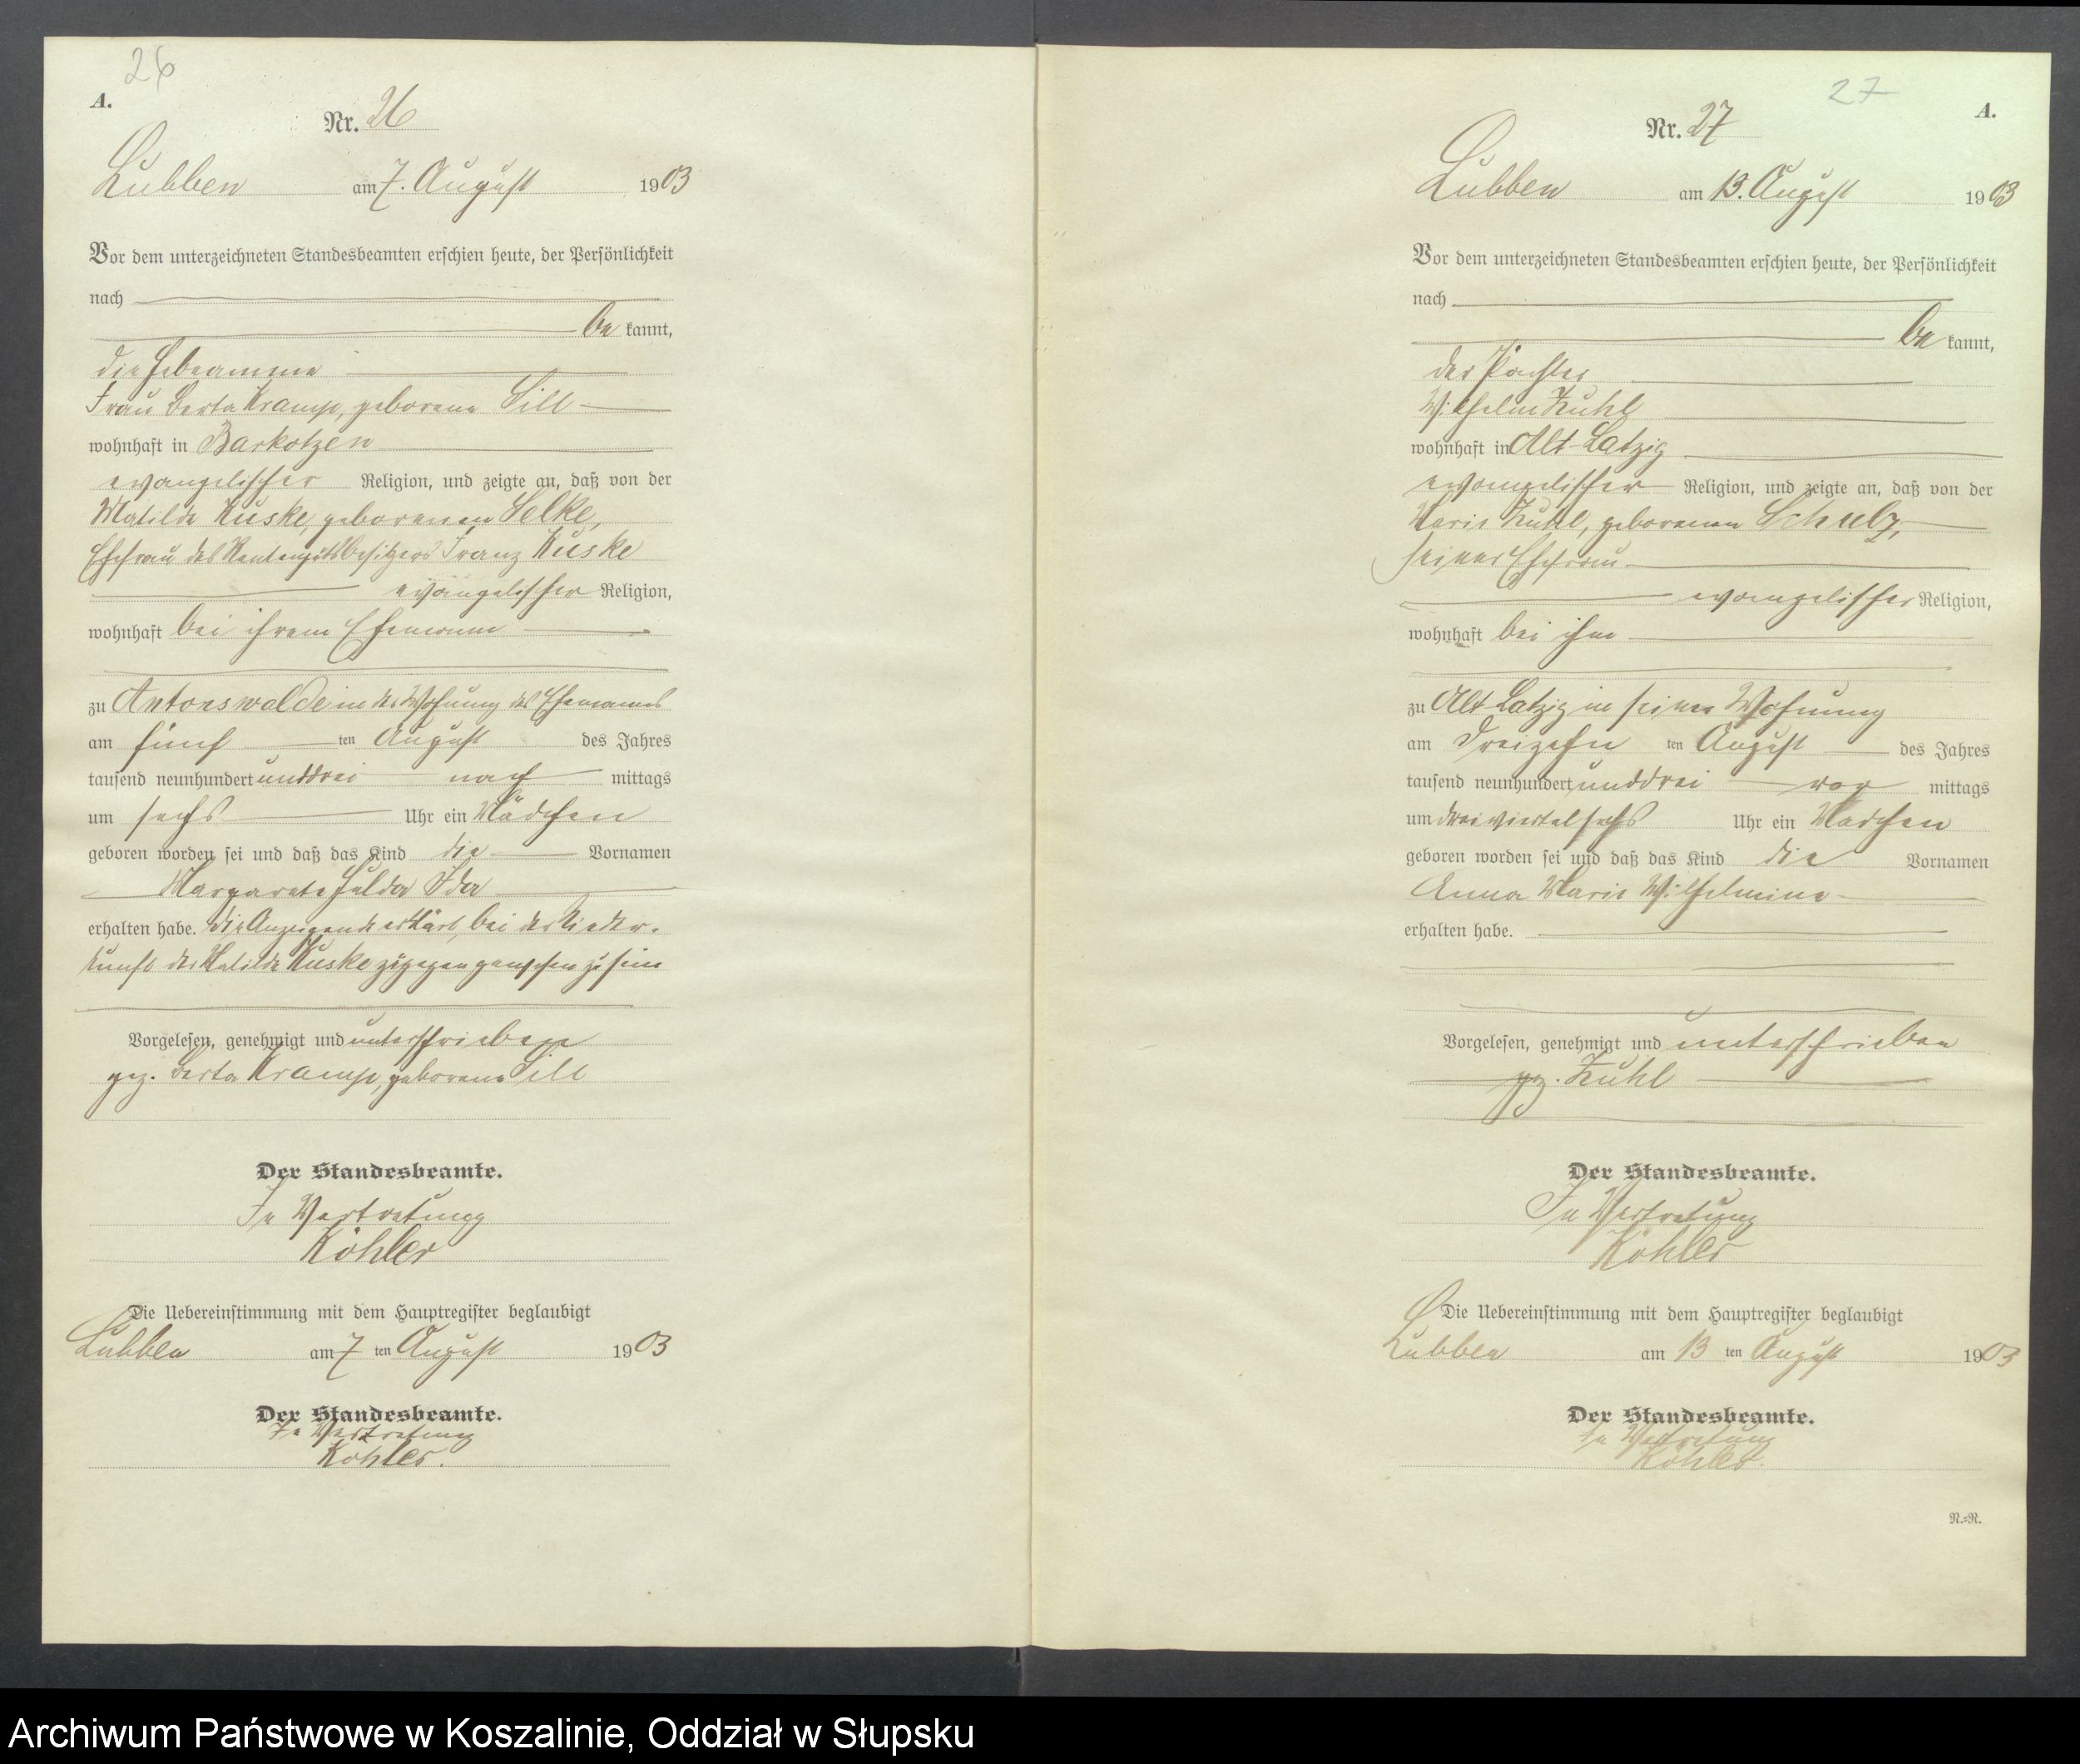 26
A.
Nr. 26
Lubben am 7. August 1903
Vor dem unterzeichneten Standesbeamten erschien heute, der Persönlichkeit
nach
be kannt,
die Hebeamme
Frau Berta Kramp, geborene Sill
wohnhaft in Barkotzen
evangelischer Religion, und zeigte an, daß von der
Matilde Kuske, geborenen Selke,
Ehefrau des Rentengutsbesitzers Franz Kuske
evangelischer Religion,
wohnhaft bei ihrem Ehemann
zu Antonswalde in der Wohnung des Ehemannes
am fünf ten August des Jahres
tausend neunhundert unddrei nach mittags
um sechs Uhr ein Mädchen
geboren worden sei und daß das Kind die Vornamen
Margarete Hulda Ida
erhalten habe. Die Anzeigende erklärt, bei der Nieder-
kunft der Matilde Kuske zugegen gewesen zu sein
Vorgelesen, genehmigt und unterschrieben
gez. Berta Kramp, geborene Sill
Der Standesbeamte.
In Vertretung
Köhler
Die Uebereinstimmung mit dem Hauptregister beglaubigt
Lubben am 7 ten August 1903
Der Standesbeamte.
In Vertretung
Köhler.
27
A.
Nr. 27
Lubben am 13. August 1903
Vor dem unterzeichneten Standesbeamten erschien heute, der Persönlichkeit
nach
be kannt,
der Pächter
Wilhelm Kuhl
wohnhaft in Alt-Latzig
evangelischer Religion, und zeigte an, daß von der
Marie Kuhl, geborenen Schulz,
seiner Ehefrau
evangelischer Religion,
wohnhaft bei ihm
zu Alt Latzig in seiner Wohnung
am dreizehn ten August des Jahres
tausend neunhundert unddrei vor mittags
um dreiviertel sechs Uhr ein Mädchen
geboren worden sei und daß das Kind die Vornamen
Anna Marie Wilhelmine
erhalten habe.
Vorgelesen, genehmigt und unterschrieben
gez. Kuhl
Der Standesbeamte.
In Vertretung
Köhler
Die Uebereinstimmung mit dem Hauptregister beglaubigt
Lubben am 13 ten August 1903
Der Standesbeamte.
In Vertretung
Köhler.
N.=N.
Archiwum Państwowe w Koszalinie, Oddział w Słupsku